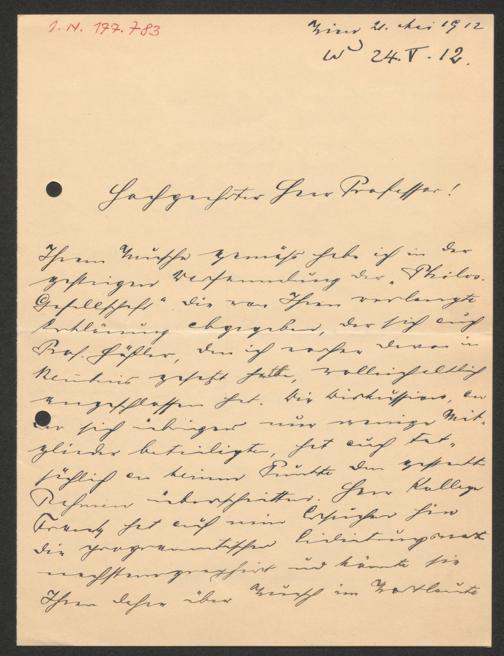 J. N. 177.783
Wien 21. Mai 1912
W 24.V.12.
Hochgeehrter Herr Professor!
Ihrem Wunsche gemäß habe ich in der
gestrigen Versammlung der „Philos.
Gesellschaft" die von Ihnen verlangte
Erklärung abgegeben, der sich auch
Prof. Höfler, den ich vorher davon in
Kenntnis gesetzt hatte, vollinhaltlich
angeschlossen hat. Die Diskussion, an
der sich übrigens nur wenige Mit-
glieder beteiligten, hat auch tat-
sächlich an keinem Punkte den gesteckten
Rahmen überschritten. Herr Kollege
hat auf mein Ersuchen hin
die programmatischen
nachstenographiert und könnte sie
Ihnen daher über Wunsch im Wortlaute